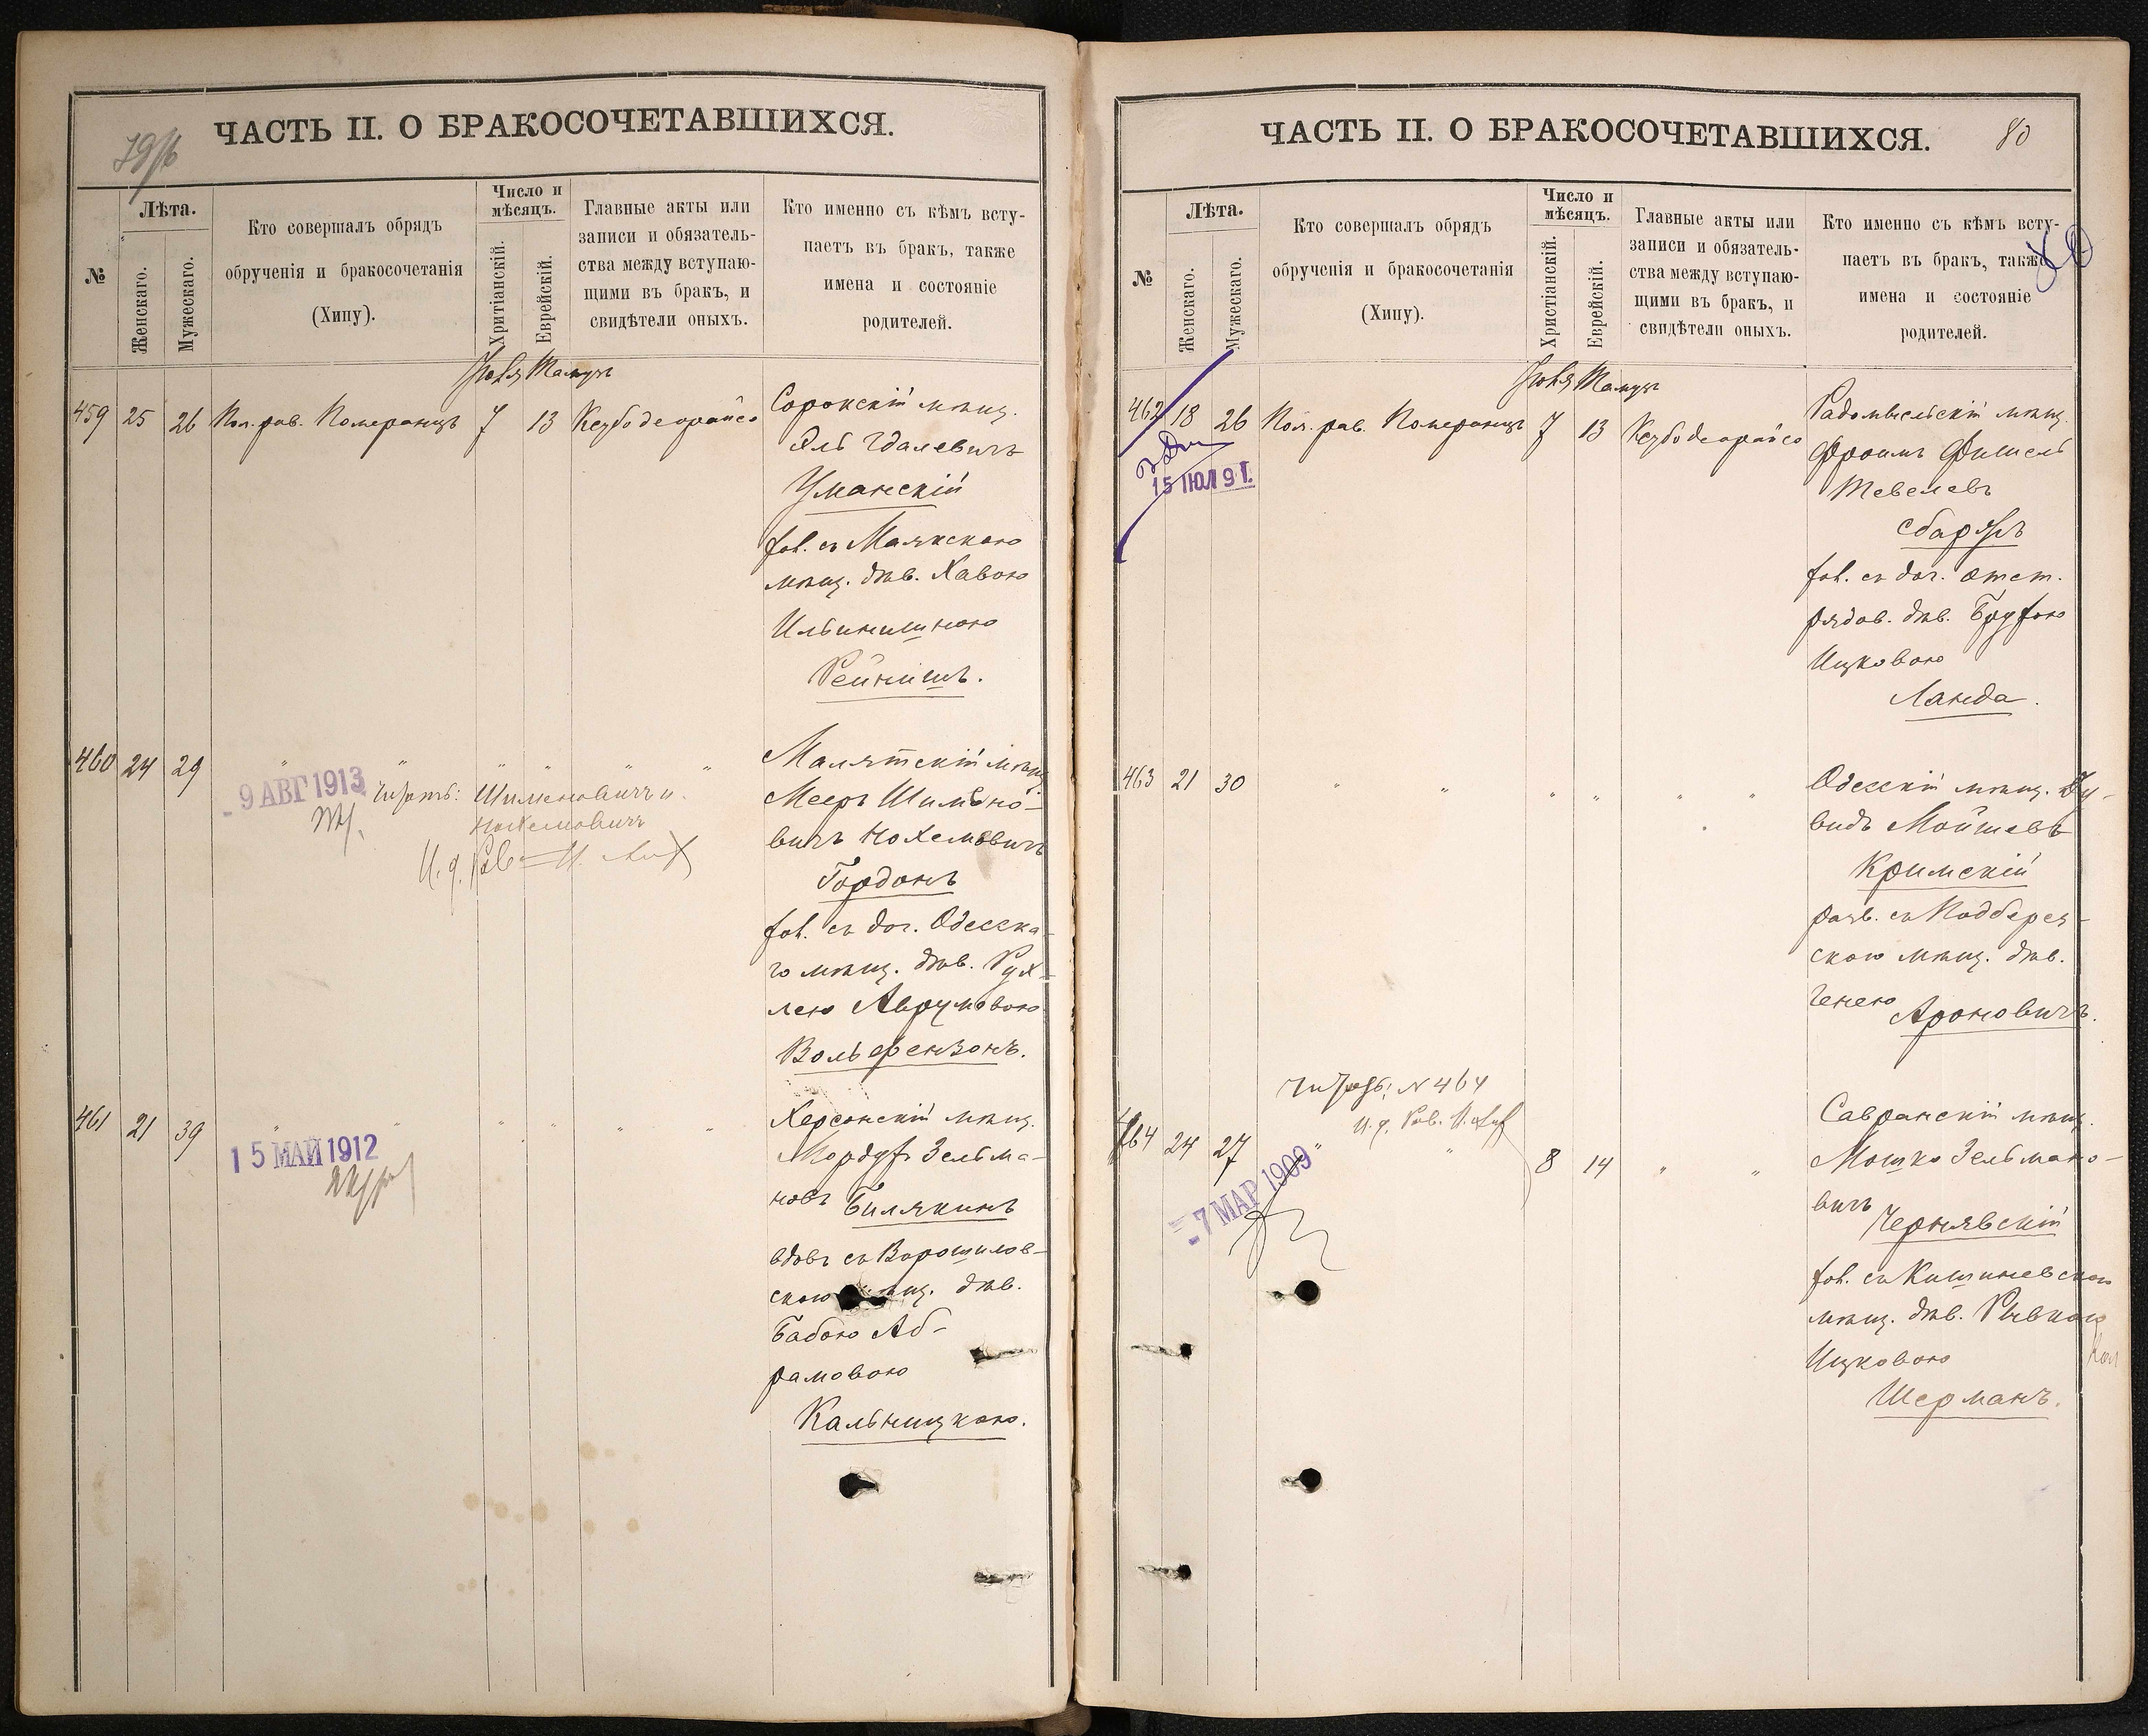 79/б
ЧАСТЬ II. О БРАКОСОЧЕТАВШИХСЯ.
№
Лѣта.
Женскаго.
Мужескаго.
Кто совершалъ обрядъ
обрученія и бракосочетанія
(Хипу).
Число и
мѣсяцъ.
Христіанскій.
Еврейскій.
Главные акты или
записи и обязатель-
ства между вступаю-
щими въ бракъ, и
свидѣтели оныхъ.
Кто именно съ кѣмъ всту-
паетъ въ бракъ, также
имена и состояніе
родителей.
Іюля Тамузъ
459 25 26 Пом. рав. Померанцъ 7 13 Кезубо деорайсо
Сорокскій мѣщ.
Эль Гдалевичъ
Уманскій
хол. съ Маякскою
мѣщ. дѣв. Хавою
Рейнишъ.
460 24 29 " " " " " "
Малятскій мѣщ.
Мееръ Шимено-
вичъ Нохемовичъ
Гордонъ
хол. съ доч. Одесска-
го мѣщ. дѣв. Рух-
лею Аврумовою
Вольфензонъ.
9 АВГ 1913
читать: Шименовичъ и
Нохемовичъ
И. д. Рав.
461 21 39 " " " " " "
Херсонскій мѣщ.
Мордух Зельма-
новъ Билякинъ
вдов съ Ворошилов-
скою мѣщ. дѣв.
Бабою Аб-
рамовою
Кальницкою.
15 МАЙ 1912
ЧАСТЬ II. О БРАКОСОЧЕТАВШИХСЯ.
80
№
Лѣта.
Женскаго.
Мужескаго.
Кто совершалъ обрядъ
обрученія и бракосочетанія
(Хипу).
Число и
мѣсяцъ.
Христіанскій.
Еврейскій.
Главные акты или
записи и обязатель-
ства между вступаю-
щими въ бракъ, и
свидѣтели оныхъ.
Кто именно съ кѣмъ всту-
паетъ въ бракъ, также
имена и состояніе
родителей.
Іюля Тамузъ
462 18 26 Пом. рав. Померанцъ 7 13 Кезубо деорайсо
Радомысльскій мѣщ.
Фроимъ Фишель
Тевелевъ
Сбаржъ
хол. съ доч. отст.
рядов. дѣв. Брухою
Ицковою
Ланда.
15 ІЮЛ 9 Г.
463 21 30 " " " " " "
Одесскій мѣщ. Ду-
видъ Мойшевъ
Кримскій
разв. съ Подберез-
скою мѣщ. дѣв.
Генею Ароновичъ.
читать: N 464
И. д. Рав.
464 24 27 " " 8 14 " "
Савранскій мѣщ.
Мошко Зельмано-
вичъ Чернявскій
хол. съ Кишиневскою
мѣщ. дѣв. Рывкою
Ицковою
Шерманъ.
7 МАР 1909